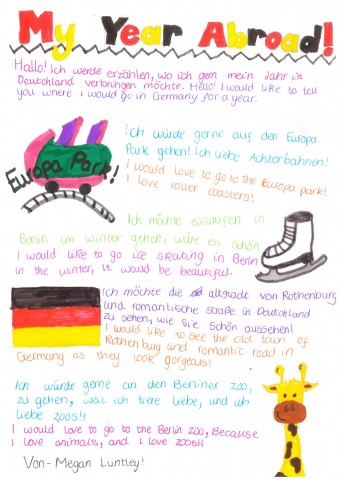 My Year Abroad!
Hallo! Ich werde erzählen, wo ich gern mein Jahr in
Deutschland verbringen möchte. Hello! I would like to tell
you where I would go in Germany for a year.
Ich würde gerne auf den Europa
Park gehen! Ich liebe Achterbahnen!
I would love to go to the Europa park!
I love roller coasters!
Europa Park!
Ich möchte eislaufen in
Berlin im winter gehen, wäre es schön
I would like to go ice skating in Berlin
in the winter, it would be beautiful.
Ich möchte die altstadt von Rothenburg
und romantische straße in Deutschland
zu sehen, wie sie schön aussehen!
I would like to see the old town of
Rothenburg and romantic road in
Germany as they look gorgeous!
Ich würde gerne an den Berliner zoo,
zu gehen, weil ich tiere liebe, und ich
liebe zoos!!
I would love to go to the Berlin zoo, Because
I love animals, and I love zoos!!
Von- Megan Luntley!